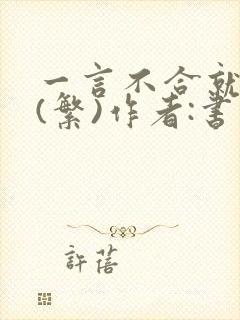 一言不合就
(繁)作者:書
許蓓